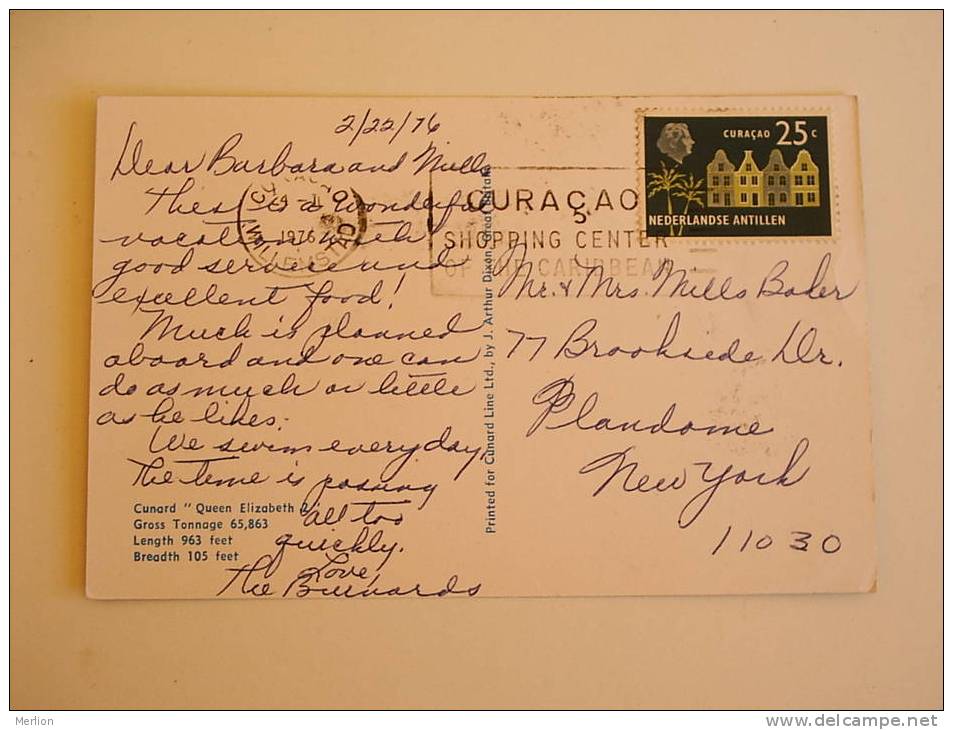 2/22/76
Dear Barbara and Mills
This is a wonderful
vacation with
good service and
excellent food!
Much is planned
aboard and one can
do as much or little
as he likes.
We swim every day,
the time is passing
all too
quickly.
Love
The
Cunard "Queen Elizabeth 2"
Gross Tonnage 65,863
Length 963 feet
Breadth 105 feet
Printed for Cunard Line Ltd., by J. Arthur Dixon, Great Britain
1976
WILLEMSTAD
CURAÇAO
SHOPPING CENTER
OF THE CARIBBEAN
CURAÇAO 25 c
NEDERLANDSE ANTILLEN
Mr. & Mrs. Mills Baker
77 Brookside Dr.
Plandome
New York
11030
Merlion
www.delcampe.net